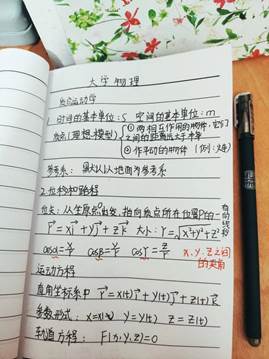 大学物理
质点运动学
1. 时间的基本单位:s 空间的基本单位:m
质点(理想模型)
① 两相互作用的物体,它们
之间的距离远大于本身
② 作平动的物体
参考系: 默认以地面为参考系
2. 位矢和路程
位矢:从坐标原点O出发,指向质点所在位置P的一
有向线段
r = xi + yj + zk 大小:r=√x²+y²+z²
cosα=x/r cosβ=y/r cosγ=z/r
x、y、z之间
的夹角
运动方程
直角坐标系中 r = x(t)i + y(t)j + z(t)k
参数形式: x=x(t) y=y(t) z=z(t)
轨道方程: F(x,y,z)=0